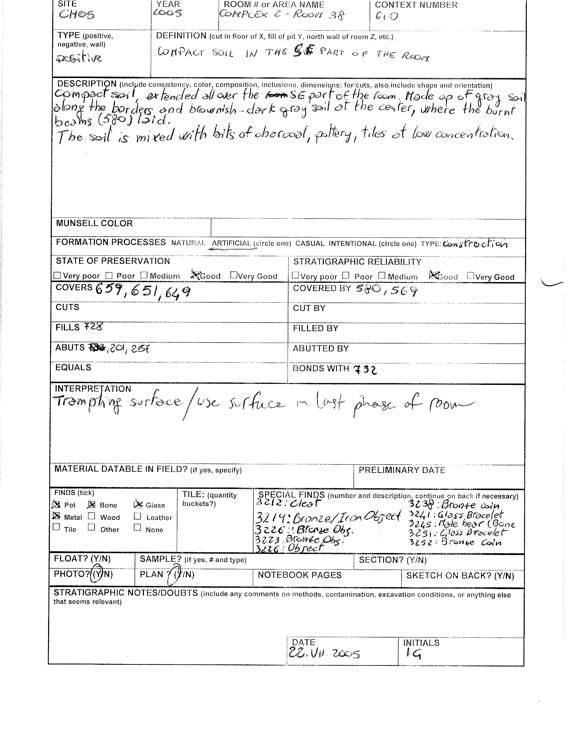 SITE YEAR ROOM # or AREA NAME CONTEXT NUMBER
CH05 2005 COMPLEX C - ROOM 38 610
TYPE (positive, negative, wall) DEFINITION (cut in floor of X, fill of pit Y, north wall of room Z, etc.)
positive COMPACT SOIL IN THE SE PART OF THE ROOM
DESCRIPTION (include consistency, color, composition, inclusions, dimensions; for cuts, also include shape and orientation)
Compact soil extended all over the SE part of the room. Made up of gray soil
along the borders and brownish-dark gray soil at the center, where the burnt
beams (580) laid.
The soil is mixed with bits of charcoal, pottery, tiles at low concentration.
MUNSELL COLOR
FORMATION PROCESSES NATURAL ARTIFICIAL (circle one) CASUAL INTENTIONAL (circle one) TYPE: Construction
STATE OF PRESERVATION STRATIGRAPHIC RELIABILITY
Very poor Poor Medium Good Very Good Very poor Poor Medium Good Very Good
COVERS 659, 651, 649 COVERED BY 580, 569
CUTS CUT BY
FILLS 728 FILLED BY
ABUTS 201, 257 ABUTTED BY
EQUALS BONDS WITH 732
INTERPRETATION
Trampling surface / use surface in last phase of room
MATERIAL DATABLE IN FIELD? (if yes, specify) PRELIMINARY DATE
FINDS (tick) TILE: (quantity buckets?) SPECIAL FINDS (number and description, continue on back if necessary)
Pot Bone Glass 3212: Cleat 3238: Bronze coin
Metal Wood Leather 3219: Bronze/Iron Object 3241: Glass Bracelet
Tile Other None 3226: Bronze Obj. 3245: (Bone
3223: Bronze Obj. 3251: Glass Bracelet
3226: Object 3252: Bronze Coin
FLOAT? (Y/N) SAMPLE? (if yes, # and type) SECTION? (Y/N)
PHOTO? (Y/N) PLAN ? (Y/N) NOTEBOOK PAGES SKETCH ON BACK? (Y/N)
STRATIGRAPHIC NOTES/DOUBTS (include any comments on methods, contamination, excavation conditions, or anything else
that seems relevant)
DATE INITIALS
22.VII.2005 IG